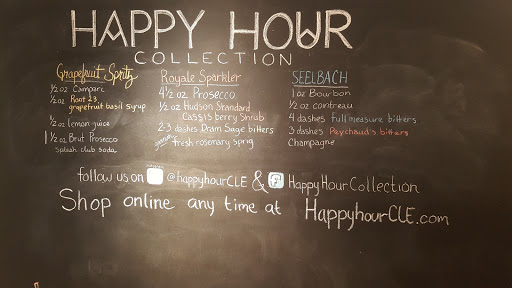 HAPPY HOUR
COLLECTION
Grapefruit Spritz
1/2 oz Campari
1/2 oz Root 23
grapefruit basil syrup
1/2 oz lemon juice
1 1/2 oz Brut Prosecco
Splash club soda
Royale Sparkler
4 1/2 oz Prosecco
1/2 oz Hudson Standard
Cassis berry Shrub
2-3 dashes Dram Sage bitters
fresh rosemary sprig
SEELBACH
1 oz Bourbon
1/2 oz cointreau
4 dashes Full measure bitters
3 dashes Peychaud's bitters
Champagne
follow us on @happyhourCLE & HappyHourCollection
Shop online any time at HappyhourCLE.com